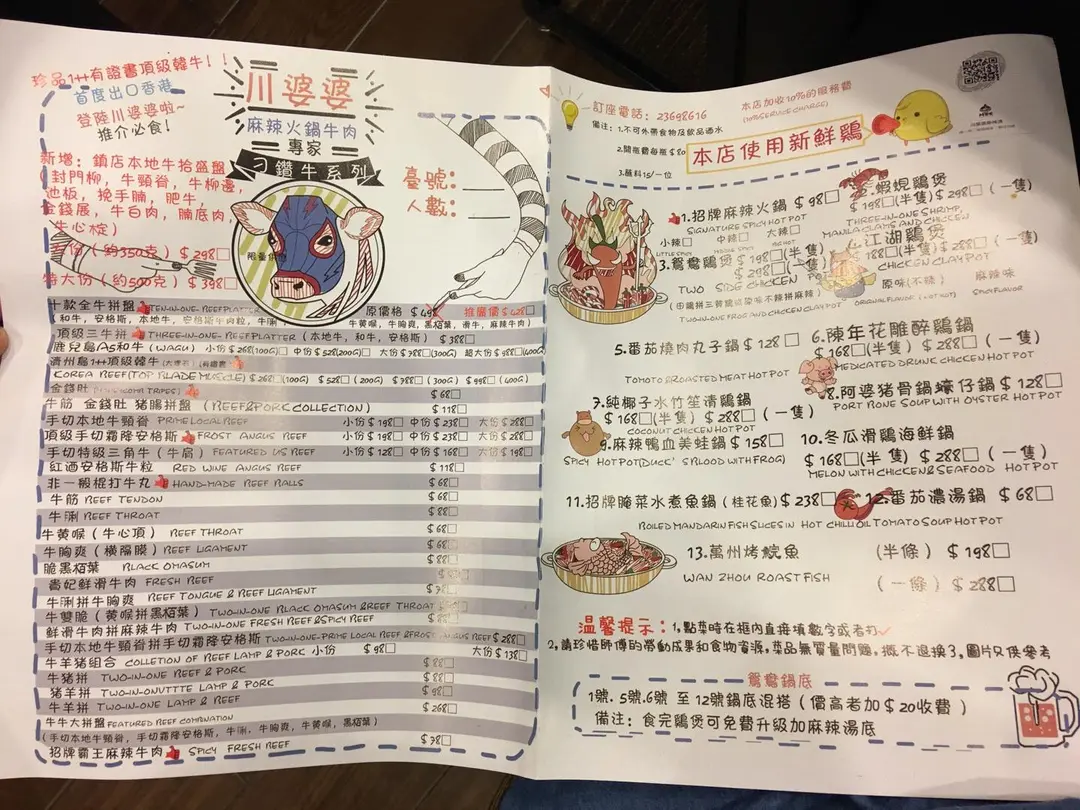 珍品1++有證書頂級韓牛!!
首度出口香港
登陸川婆婆啦~
推介必食!
川婆婆
麻辣火鍋牛肉
專家
刁鑽牛系列
新增: 鎖店本地牛拾盛盤
(封門柳, 牛頸脊, 牛柳邊,
池板, 挽手腩, 肥牛,
金錢展, 牛白肉, 腩底肉,
牛心椗)
份 (約350克) $298□
特大份 (約500克) $398□
臺號:
人數:
十款全牛拼盤 TEN-IN-ONE 原價格 推廣價
頂級三牛拼 THREE-IN-ONE-BEEF PLATTER (本地牛, 和牛, 安格斯) $388□
鹿兒島A5和牛 (WAGU) 小份 $268□(100G) 中份 $528□(200G) 大份 $788□(300G) 超大份 $988□(400G)
濟州島1++頂級韓牛
KOREA BEEF(TOP BLADE MUSCLE) $268□(100G) $528□(200G) $788□(300G) $998□(400G)
金錢肚 $68□
牛筋 金錢肚 豬腸拼盤 (BEEF&PORK COLLECTION) $118□
手切本地牛頸脊 PRIME LOCAL BEEF 小份 $198□ 中份 $238□ 大份 $288□
頂級手切霜降安格斯 FROST ANGUS BEEF 小份 $198□ 中份 $238□ 大份 $288□
手切特級三角牛 (牛肩) FEATURED US BEEF 小份 $128□ 中份 $168□ 大份 $198□
紅酒安格斯牛粒 RED WINE ANGUS BEEF $118□
非一般棍打牛丸 HAND-MADE BEEF BALLS $68□
牛筋 BEEF TENDON $68□
牛脷 BEEF THROAT $88□
牛黃喉 (牛心頂) BEEF THROAT $68□
牛胸爽 (橫隔膜) BEEF LIGAMENT $68□
脆黑栢葉 BLACK OMASUM $88□
貴妃鮮滑牛肉 FRESH BEEF
牛脷拼牛胸爽 BEEF TONGUE & BEEF LIGAMENT $78□
牛雙脆 (黃喉拼黑栢葉) TWO-IN-ONE BLACK OMASUM &BEEF THROAT
鮮滑牛肉拼麻辣牛肉 TWO-IN-ONE FRESH BEEF&SPICY BEEF $88□
手切本地牛頸脊拼手切霜降安格斯 TWO-IN-ONE-PRIME LOCAL BEEF &FROST ANGUS BEEF $288□
牛羊豬組合 COLLETION OF BEEF LAMP & PORK 小份 $98□ 大份 $138□
牛豬拼 TWO-IN-ONE BEEF & PORK $88□
豬羊拼 TWO-IN-ONUTTTE LAMP & PORK $88□
牛羊拼 TWO-IN-ONE LAMP & BEEF $98□
牛牛大拼盤 FEATURED BEEF COMBINATION $268□
(手切本地牛頸脊, 手切霜降安格斯, 牛脷, 牛胸爽, 牛黃喉, 黑栢葉)
招牌霸王麻辣牛肉 SPICY FRESH BEEF $78□
訂座電話: 23698616
本店加收10%的服務費
(10%SERVICE CHARGE)
備注: 1.不可外帶食物及飲品酒水
2.開瓶費每瓶 $80
3.蘸料15/一位
本店使用新鮮鷄
1.招牌麻辣火鍋 $98□
SIGNATURE SPICY HOT POT
小辣□ 中辣□ 大辣□
2.蝦蜆鷄煲
$198□(半隻) $298□ (一隻)
THREE-IN-ONE SHRIMP,
MANILA CLAMS AND CHICKEN
3.鴛鴦鷄煲 $198□(半隻)
$298□(一隻)
TWO SIDE CHICKEN POT
TWO-IN-ONE FROG AND CHICKEN CLAY POT
江湖鷄煲
$188□(半隻) $288□ (一隻)
CHICKEN CLAY POT
原味(不辣) 麻辣味
ORIGINAL FLAVOR (NOT HOT) SPICY FLAVOR
5.番茄燒肉丸子鍋 $128□
TOMATO & ROASTED MEAT HOT POT
6.陳年花雕醉鷄鍋
$168□(半隻) $288□ (一隻)
MEDICATED DRUNK CHICKEN HOT POT
7.純椰子水竹笙清鷄鍋
$168□(半隻) $288□ (一隻)
COCONUT CHICKEN HOT POT
8.阿婆豬骨鍋蠔仔鍋 $128□
PORT BONE SOUP WITH OYSTER HOT POT
9.麻辣鴨血美蛙鍋 $158□
SPICY HOT POT(DUCK'S BLOOD WITH FROG)
10.冬瓜滑鷄海鮮鍋
$168□(半隻) $288□ (一隻)
MELON WITH CHICKEN & SEAFOOD HOT POT
11.招牌腌菜水煮魚鍋 (桂花魚) $238□
BOILED MANDARIN FISH SLICES IN HOT CHILLI OIL
12.番茄濃湯鍋 $68□
TOMATO SOUP HOT POT
13.萬州烤鯇魚 (半條) $198□
WAN ZHOU ROAST FISH (一條) $288□
溫馨提示: 1,點菜時在框内直接填數字或者打✓
2,請珍惜師傅的勞動成果和食物資源, 菜品無質量問題, 概不退換 3, 圖片只供參考
鴛鴦鍋底
1號. 5號.6號 至 12號鍋底混搭 (價高者加 $20收費)
備注: 食完鷄煲可免費升級加麻辣湯底